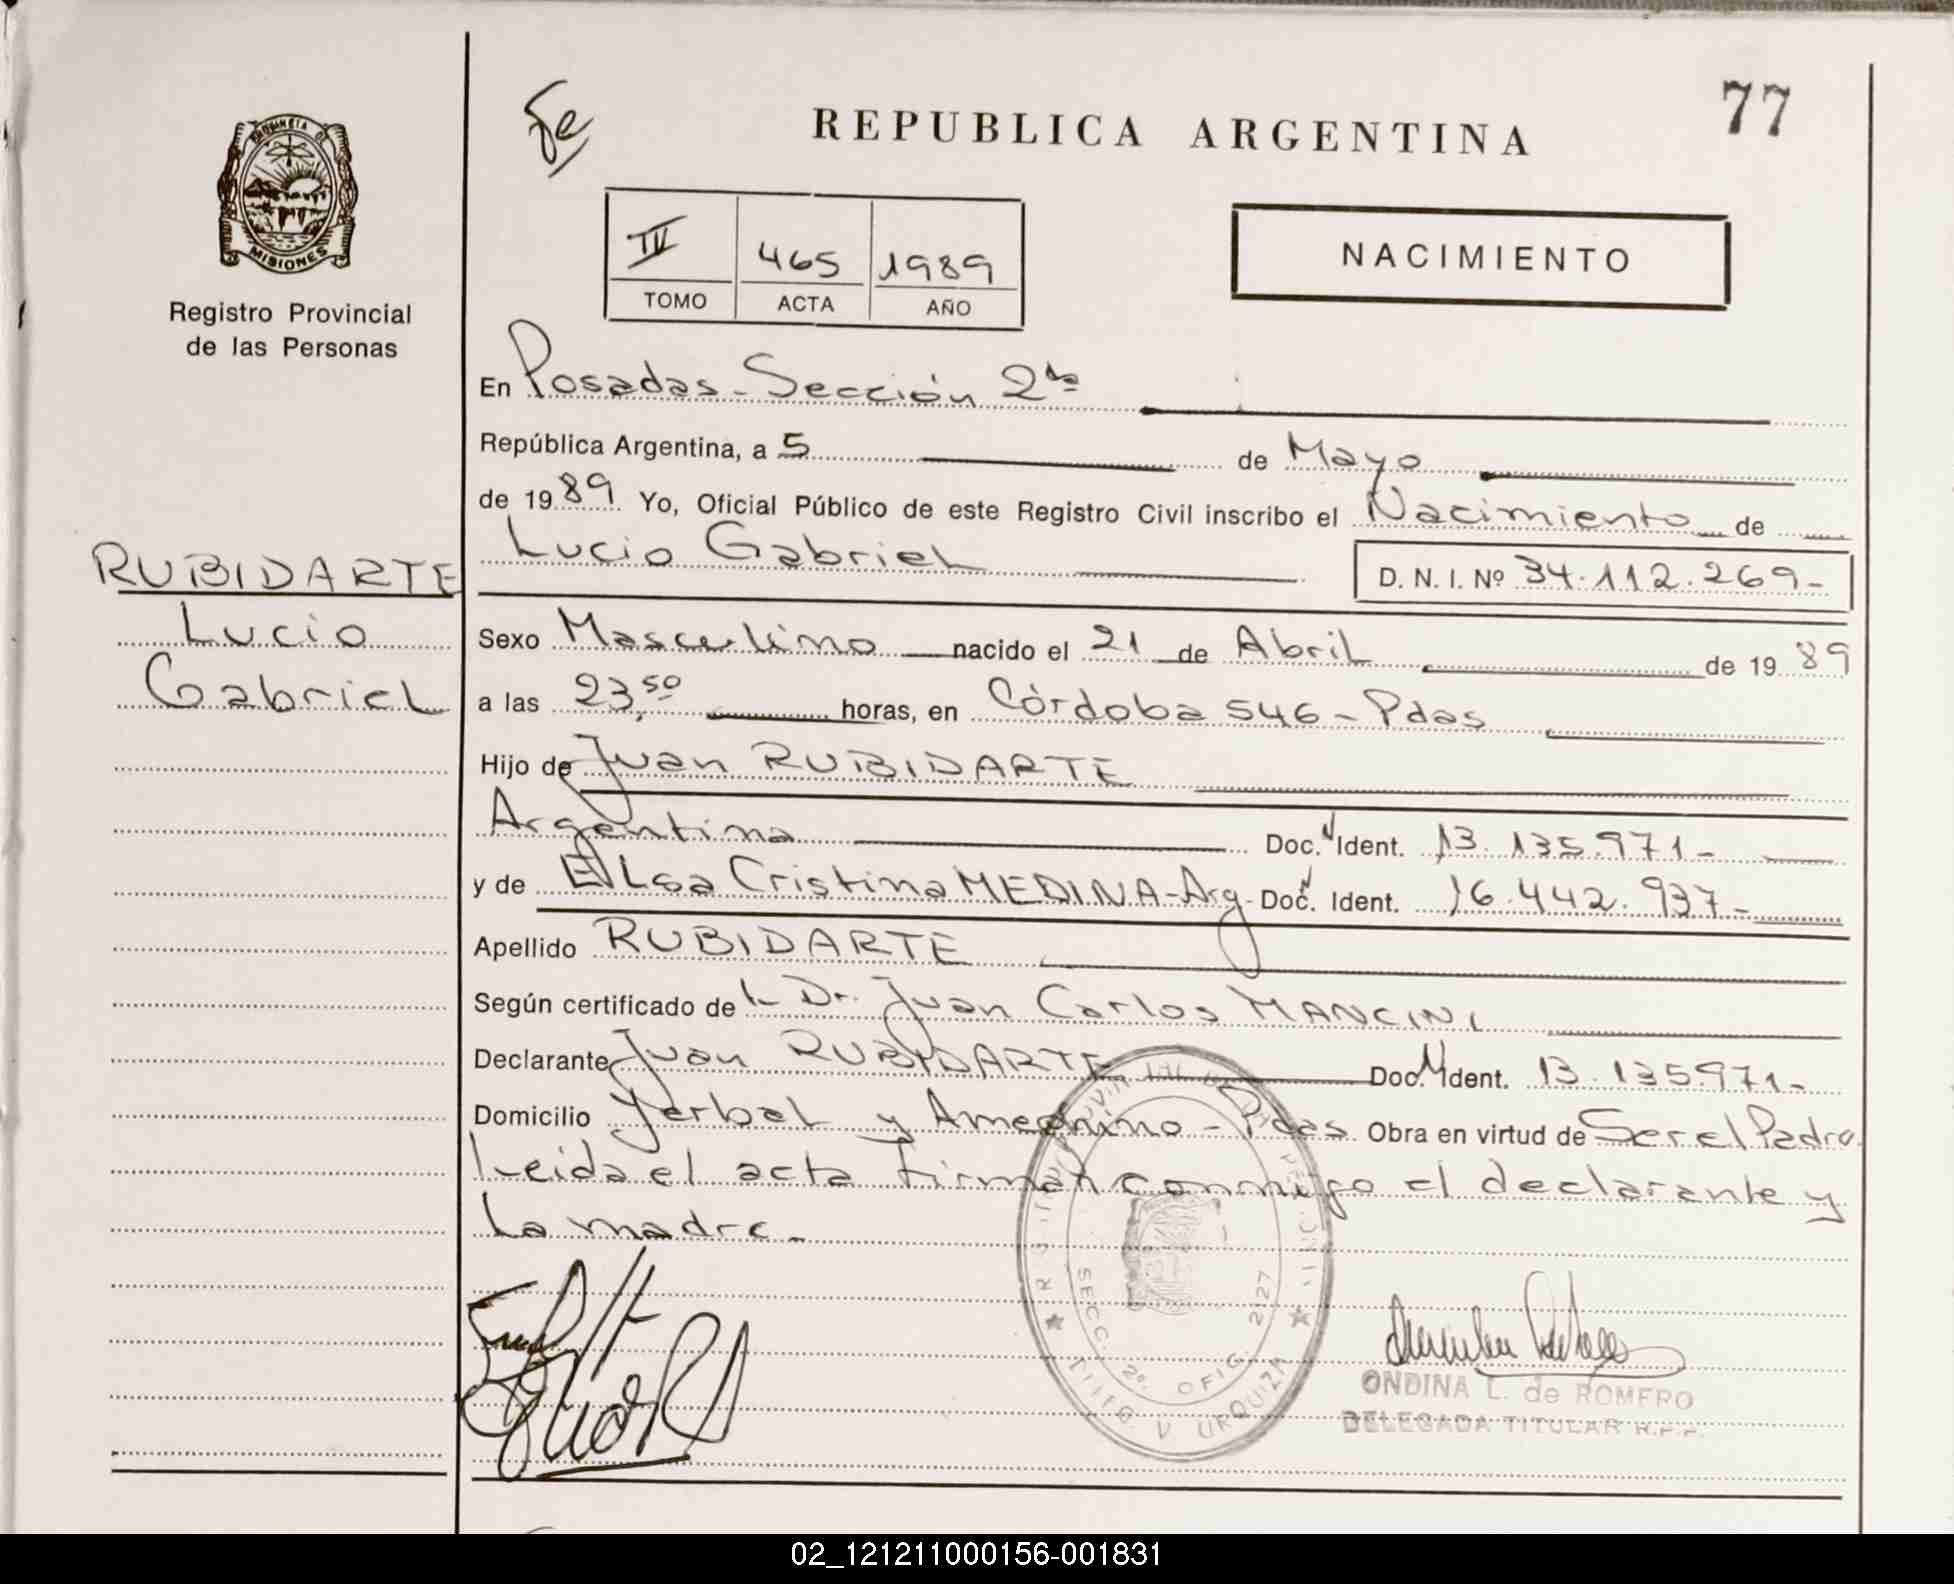 77
REPUBLICA ARGENTINA
PROVINCIA DE
MISIONES
Registro Provincial
de las Personas
IV 465 1989
TOMO ACTA AÑO
NACIMIENTO
En Posadas - Sección 2da
República Argentina, a 5 de Mayo
de 1989 Yo, Oficial Público de este Registro Civil inscribo el Nacimiento de
Lucio Gabriel D. N. I. Nº 34.112.269-
RUBIDARTE
Lucio
Gabriel
Sexo Masculino nacido el 21 de Abril de 1989
a las 23,50 horas, en Córdoba 546 - Pdas
Hijo de Juan RUBIDARTE
Argentina Doc. Ident. 13.135.971-
y de Elsa Cristina MEDINA - Arg. Doc. Ident. 16.442.937-
Apellido RUBIDARTE
Según certificado del Dr. Juan Carlos MANCINI
Declarante Juan RUBIDARTE Doc. Ident. 13.135.971-
Domicilio Yerbal y - Pdas. Obra en virtud de Ser el Padre
Leida el acta firman conmigo el declarante y
la madre.-
SECC. 2º. OFIC. 2127
URQUIZA
ONDINA L. de ROMERO
DELEGADA TITULAR R.P.P.
02_121211000156-001831